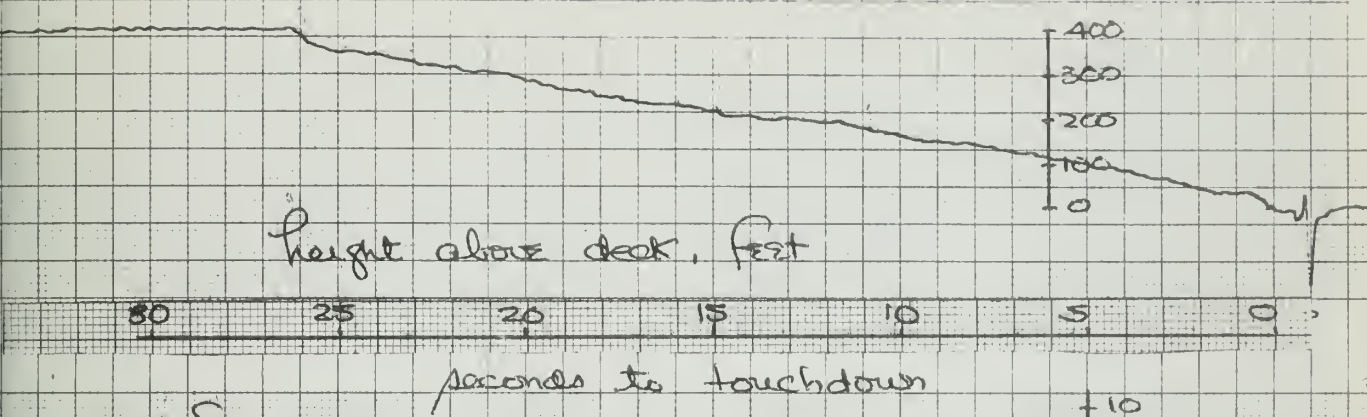 400
300
200
100
0
height above deck, feet
30 25 20 15 10 5 0
seconds to touchdown
+10